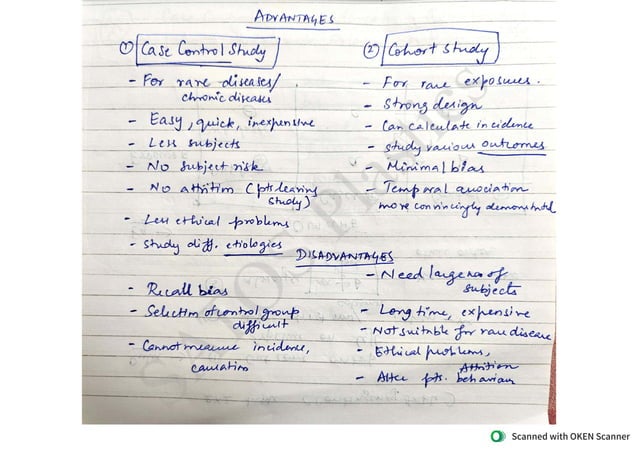 ADVANTAGES
① Case Control Study
- For rare diseases/
chronic diseases
- Easy, quick, inexpensive
- Less subjects
- No subject risk
- No attrition (pts leaving
study)
- Less ethical problems
- Study diff. etiologies
② Cohort study
- For rare exposures.
- Strong design
- Can calculate incidence
- study various outcomes
- Minimal bias
- Temporal association
more convincingly demonstrated
DISADVANTAGES
- Recall bias
- Selection of control group
difficult
- Cannot measure incidence,
causation
- Need large no of
subjects
- Long time, expensive
- Not suitable for rare disease
- Ethical problems,
Attrition
- Alter pts. behaviour
Scanned with OKEN Scanner